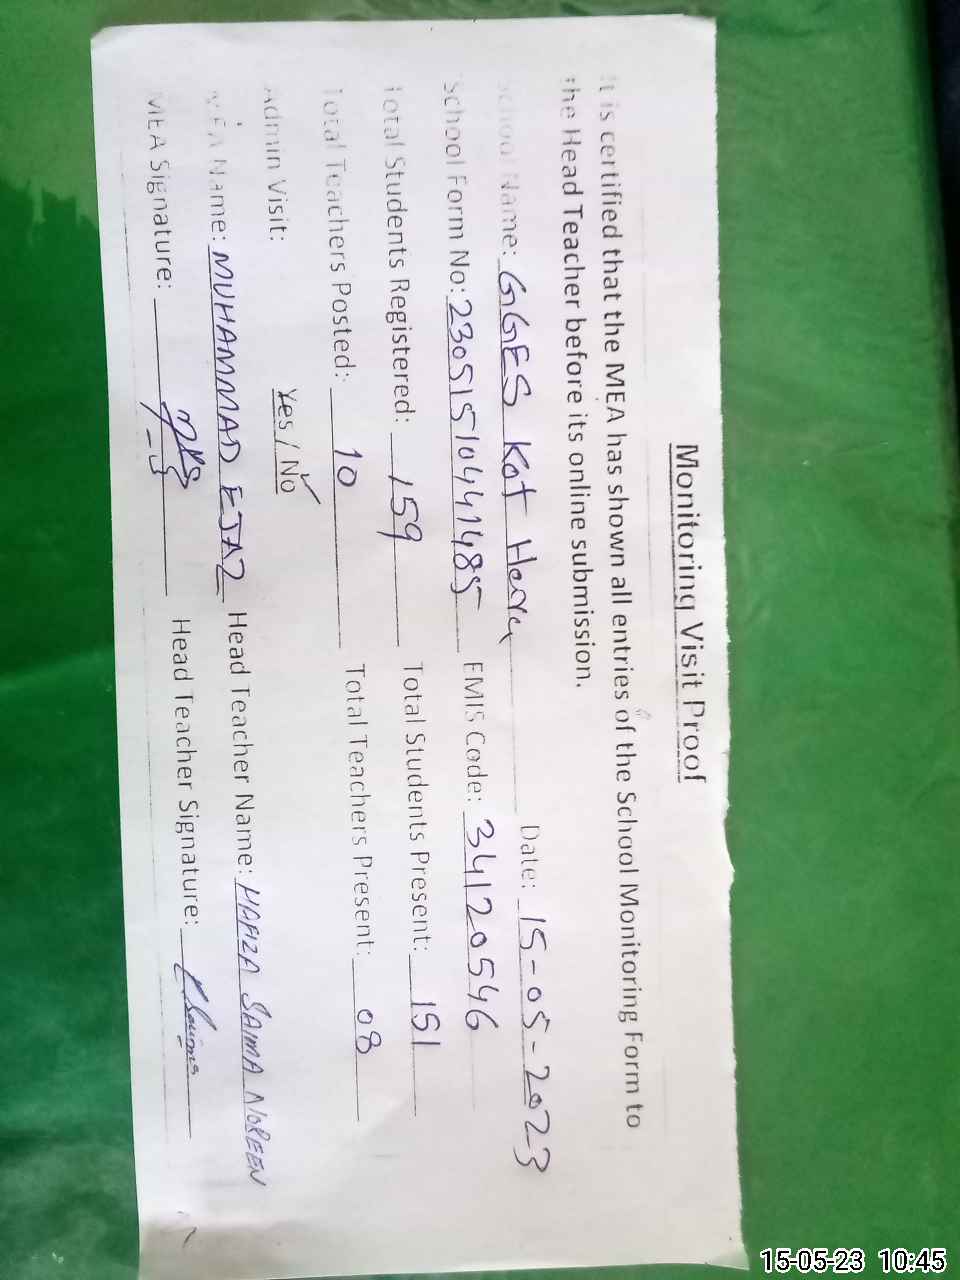 Monitoring Visit Proof
It is certified that the MEA has shown all entries of the School Monitoring Form to
the Head Teacher before its online submission.
School Name: GGES Kot Date: 15-05-2023
School Form No: 23051510441485 EMIS Code: 34120546
Total Students Registered: 159 Total Students Present: 151
Total Teachers Posted: 10 Total Teachers Present: 08
Admin Visit: Yes / No ✓
MEA Name: MUHAMMAD EJAZ Head Teacher Name: HAFIZA SAIMA NOREEN
MEA Signature: Head Teacher Signature:
15-05-23 10:45